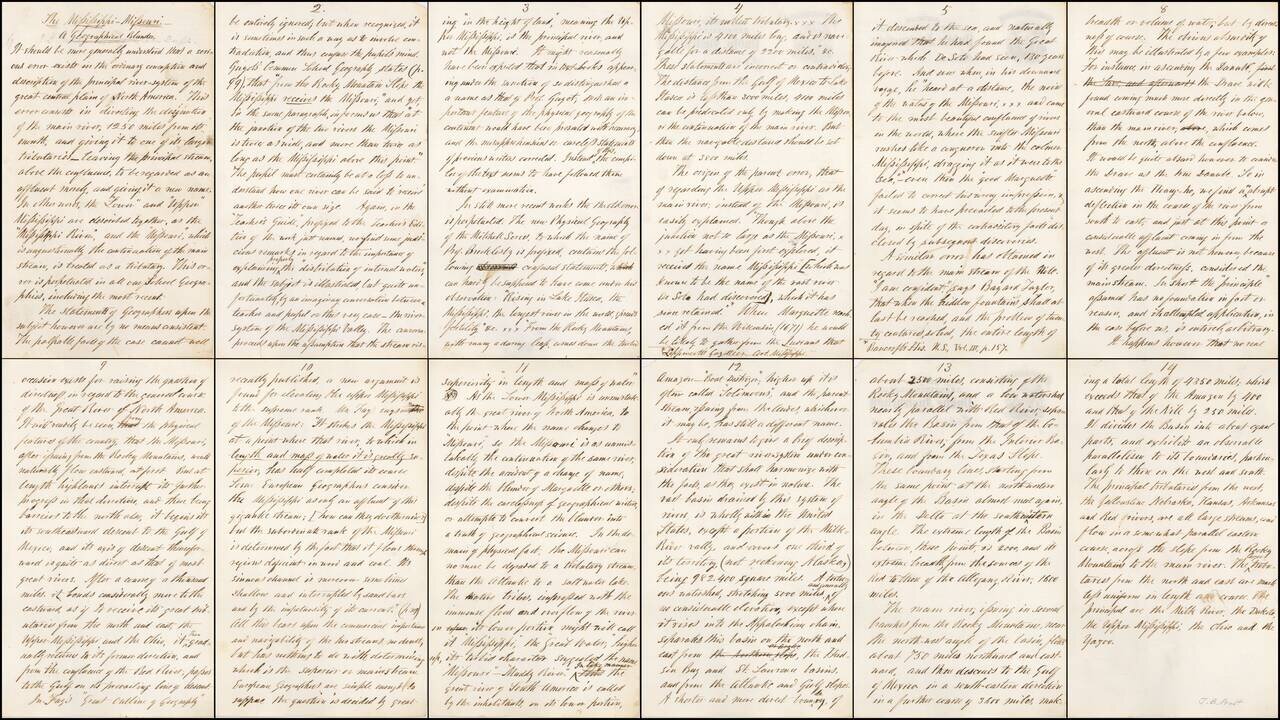 The Mississippi-Missouri—
A Geographical Blunder.
It should be more generally understood that a seri-
ous error exists in the ordinary conception and
description of the principal river system of the
great central plain of North America. This
error consists in diverting the designation
of the main river, 1250 miles from its
mouth, and giving it to one of its large
tributaries—leaving the principal stream,
above the confluence, to be regarded as an
affluent merely, and giving it a new name.
In other words, the "Lower" and "Upper"
Mississippi are described together, as the
"Mississippi River," and the Missouri, which
is unquestionably the continuation of the main
stream, is treated as a tributary. This er-
ror is perpetuated in all our School Geogra-
phies, including the most recent.
The statements of Geographers upon the
subject however are by no means consistent.
The palpable facts of the case cannot well
2.
be entirely ignored, but when recognized, it
is sometimes in such a way as to involve con-
tradiction, and thus confuse the pupil's mind.
Guyot's Common School Geography states (p.
), that "from the Rocky Mountain Slope the
Mississippi receives the Missouri," and yet,
in the same paragraph, informs us that "at
the junction of the two rivers the Missouri
is twice as wide, and more than twice as
long as the Mississippi above this point."
The pupil must certainly be at a loss to un-
derstand how one river can be said to receive
another twice its own size. Again, in the
"Teachers Guide," prefixed to the Teacher's Edi-
tion of the work just named, we find some judi-
cious remarks in regard to the importance of
explaining properly "the distribution of internal waters,"
and the subject is illustrated, but quite un-
fortunately, by an imaginary conversation between
teacher and pupil on this very case—the river-
system of the Mississippi Valley. The conversa-
tion proceeds upon the assumption that the stream ris-
3
ing "in the height of land," meaning the Up-
per Mississippi, is the principal river, and
not the Missouri. It might reasonably
have been expected that in text books appear-
ing under the sanction of so distinguished
a name as that of Prof. Guyot, such an im-
portant feature of the physical geography of the
continent would have been presented with accuracy,
and the misapprehension or careless statements
of previous writers corrected. Instead, the compi-
lers of the text seem to have followed them
without examination.
In still more recent works the old error
is perpetuated. The new Physical Geography
of the Mitchell Series, to which the name of
Prof. Brocklesby is prefixed, contains the fol-
lowing confused statement, which
can hardly be supposed to have come under his
observation: "Rising in Lake Itasca, the
Mississippi, the longest river in the world, flows
" &c. x x x "From the Rocky Mountains,
with many a daring leap, comes down the turbid
4
Missouri, its noblest tributary. x x x The
Mississippi is 4100 miles long, and is navi-
gable for a distance of 2200 miles," &c.
These statements are incorrect or contradictory.
The distance from the Gulf of Mexico to Lake
Itasca is less than 3000 miles. 4100 miles
can be predicated only by making the Missou-
ri the continuation of the main river. But
then the navigable distance should be set
down at 3000 miles.
The origin of the parent error, that
of regarding the Upper Mississippi as the
main river, instead of the Missouri, is
easily explained. "Though above the
junction not so large as the Missouri, x
x x yet having been first explored, it
received the name Mississippi [which was
known to be the name of the vast river
De Soto had discovered], which it has
since retained." When Marquette reach-
ed it from the Wisconsin (1673) he would
be likely to gather from the Indians that
Lippincott's Gazetteer art. Mississippi.
5
it descended to the sea, and naturally
imagined that he had found the Great
River which De Soto had seen, 130 years
before. And even when in his downward
voyage, he "heard at a distance, the noise
of the waters of the Missouri, x x x and came
to the most beautiful confluence of rivers
in the world, where the swifter Missouri
rushes like a conqueror into the calmer
Mississippi, dragging it as it were to the
sea," even then the Good Marquette
failed to correct his wrong impression, &
it seems to have prevailed to the present
day, in spite of the contradictory facts dis-
closed by subsequent discoveries.
A similar error has obtained in
regard to the main stream of the Nile.
"I am confident," says Bayard Taylor,
"that when the hidden fountains shall at
last be reached, and the problem of twen-
ty centuries solved, the entire length of
Bancroft's His. U.S., Vol. III, p. 157.
8
breadth or volume of water, but by direct-
ness of course. The obvious absurdity of
this may be illustrated by a few examples.
For instance in ascending the Danube, 
the Drave will be
found coming much more directly in the gene-
ral eastward course of the river below,
than the main river, which comes
from the north, above the confluence.
It would be quite absurd however to consider
the Drave as the true Danube. So in
ascending the Theiss, too, we find an abrupt
deflection in the course of the river from
south to east, and just at this point a
considerable affluent coming in from the
west. The affluent is not however because
of its greater directness, considered the
main stream. In short the "principle"
assumed has no foundation in fact or
reason, and its attempted application, in
the case before us, is entirely arbitrary.
It happens however that no real
9
occasion exists for raising the question of
directness in regard to the general course
of the Great River of North America.
It will readily be seen, from the physical
features of the country, that the Missouri,
after issuing from the Rocky Mountains, would
naturally flow eastward, at first. But at
length highlands intercept its further
progress in that direction, and thus being
a barrier to the north also, it begins its
its southeastward descent to the Gulf of
Mexico, and its axis of descent thencefor-
ward is quite as direct as that of most
great rivers. After a course of a thousand
miles it bends considerably more to the
eastward, as if to receive its great trib-
utaries from the north and east, the
Upper Mississippi and the Ohio, it then grad-
ually returns to its former direction, and
from the confluence of the Red River, passes
to the Gulf on its prevailing line of descent.
In Fay's "Great Outline of Geography"
10
recently published, a new argument is
found for elevating the upper Mississippi
to the supreme rank. Mr. Fay says
of the Missouri: "It strikes the Mississippi
at a point where that river, to which in
length and mass of water it is greatly su-
perior, has half completed its course.
Some European Geographers consider
the Mississippi as only an affluent of this
gigantic stream; [how can they do otherwise?]
but the subordinate rank of the Missouri
is determined by the fact that it flows through
regions deficient in wood and coal. Its
sinuous channel is narrow—sometimes
shallow and interrupted by sand bars
and by the impetuosity of its current."
All this bears upon the commercial importance
and navigability of the two streams no doubt,
but has nothing to do with determining
which is the superior or main stream.
European Geographers are simple enough to
suppose the question is decided by great
11
superiority "in length and mass of water."
As the Lower Mississippi is unmistak-
ably the great river of North America, to
the point where the name changes to
Missouri, so the Missouri is as unmis-
takably the continuation of the same river,
despite the accident of a change of name,
despite the blunder of Marquette or others,
despite the carelessness of geographical writers,
or attempts to convert the blunder into
a truth of geographical science. In the do-
main of physical fact, the Missouri can
no more be degraded to a tributary stream,
than the Atlantic to a salt water lake.
The native tribes, impressed with the
immense flood and overflow of the river
in its lower portion, might well call
it "Mississippi, the Great Water;" higher
up, its turbid character suggested the name
Missouri—"Muddy River." In like manner the
great river of South America is called
by the inhabitants, on its lower portion,
12
Amazon—"Boat Destroyer," higher up it is
often called Solimoens, and the parent
stream issuing from the Andes, whichever
it may be, has still a different name.
It only remains to give a brief descrip-
tion of the great river system under con-
sideration that shall harmonize with
the facts as they exist in nature. The
vast basin drained by this system of
rivers is wholly within the United
States, except a portion of the Milk
River valley, and covers one third of
its territory (not reckoning Alaska)
being 982,400 square miles. A tortu-
ous watershed, stretching 5000 miles, and generally of
no considerable elevation, except where
it rises into the Appalachian chain
separates this basin on the north and
east from the Hud-
son Bay and St. Lawrence basins,
and from the Atlantic and Gulf slopes.
A shorter and more direct boundary, of
13
about 2500 miles, consisting of the
Rocky Mountains, and a low watershed
nearly parallel with Red River, separ-
rates the Basin from that of the Co-
lumbia River, from the Interior Ba-
sin, and from the Texas Slope.
These boundary lines, starting from
the same point at the northwestern
angle of the Basin almost meet again,
in the Delta at the southeastern
angle. The extreme length of the Basin
between these points, is 2100, and its
extreme breadth, from the sources of the
Red to those of the Allegany River, 1500
miles.
The main river, issuing in several
branches from the Rocky Mountains, near
the north west angle of the basin, flows
about 750 miles northward and east-
ward, and then descends to the Gulf
of Mexico in a south-eastern direction
in a further course of 3600 miles, mak-
14
ing a total length of 4350 miles, which
exceeds that of the Amazon by 400
and that of the Nile by 250 miles.
It divides the Basin into about equal
parts, and exhibits an observable
parallelism to its boundaries, particu-
larly to those on the west and south.
The principal tributaries from the west,
the Yellowstone, Nebraska, Kansas, Arkansas,
and Red Rivers, are all large streams, and
flow in a somewhat parallel eastern
course, across the slope from the Rocky
Mountains to the main river. The tribu-
taries from the north and east are much
less uniform in length and course. The
principal are the Milk River, the Dakota,
the Upper Mississippi, the Ohio and the
Yazoo.